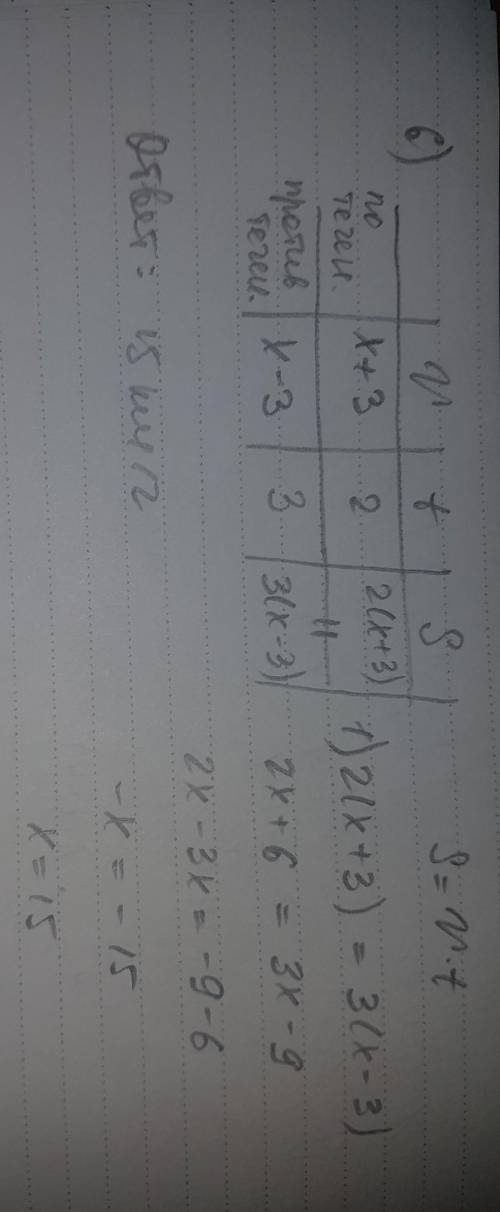 6)
v t S S = v · t
по течен. x + 3 2 2(x+3)
против течен. x - 3 3 3(x-3)
1) 2(x+3) = 3(x-3)
2x + 6 = 3x - 9
2x - 3x = -9 - 6
-x = -15
x = 15
Ответ: 15 км/ч